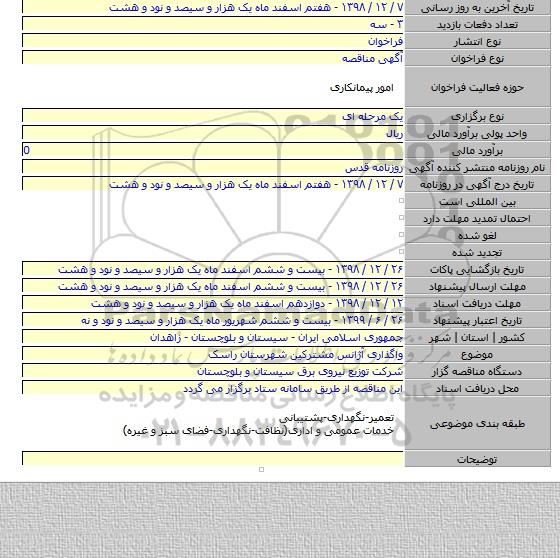 تاریخ آخرین به روز رسانی ۷ / ۱۲ / ۱۳۹۸ - هفتم اسفند ماه یک هزار و سیصد و نود و هشت
تعداد دفعات بازدید ۳ - سه
نوع انتشار فراخوان
نوع فراخوان آگهی مناقصه
حوزه فعالیت فراخوان امور پیمانکاری
نوع برگزاری یک مرحله ای
واحد پولی برآورد مالی ریال
برآورد مالی 0
نام روزنامه منتشر کننده آگهی روزنامه قدس
تاریخ درج آگهی در روزنامه ۷ / ۱۲ / ۱۳۹۸ - هفتم اسفند ماه یک هزار و سیصد و نود و هشت
بین المللی است
احتمال تمدید مهلت دارد
لغو شده
تجدید شده
تاریخ بازگشایی پاکات ۲۶ / ۱۲ / ۱۳۹۸ - بیست و ششم اسفند ماه یک هزار و سیصد و نود و هشت
مهلت ارسال پیشنهاد ۲۶ / ۱۲ / ۱۳۹۸ - بیست و ششم اسفند ماه یک هزار و سیصد و نود و هشت
مهلت دریافت اسناد ۱۲ / ۱۲ / ۱۳۹۸ - دوازدهم اسفند ماه یک هزار و سیصد و نود و هشت
تاریخ اعتبار پیشنهاد ۲۶ / ۶ / ۱۳۹۹ - بیست و ششم شهریور ماه یک هزار و سیصد و نود و نه
کشور | استان | شهر جمهوری اسلامی ایران - سیستان و بلوچستان - زاهدان
موضوع واگذاری آژانس مشترکین شهرستان راسک
دستگاه مناقصه گزار شرکت توزیع نیروی برق سیستان و بلوچستان
محل دریافت اسناد این مناقصه از طریق سامانه ستاد برگزار می گردد
طبقه بندی موضوعی تعمیر-نگهداری-پشتیبانی
خدمات عمومی و اداری(نظافت-نگهداری-فضای سبز و غیره)
توضیحات
ParsNamadData
پایگاه اطلاع رسانی مناقصه و مزایده
۰۲۱-۸۸۳۴۹۶۷۰-۵